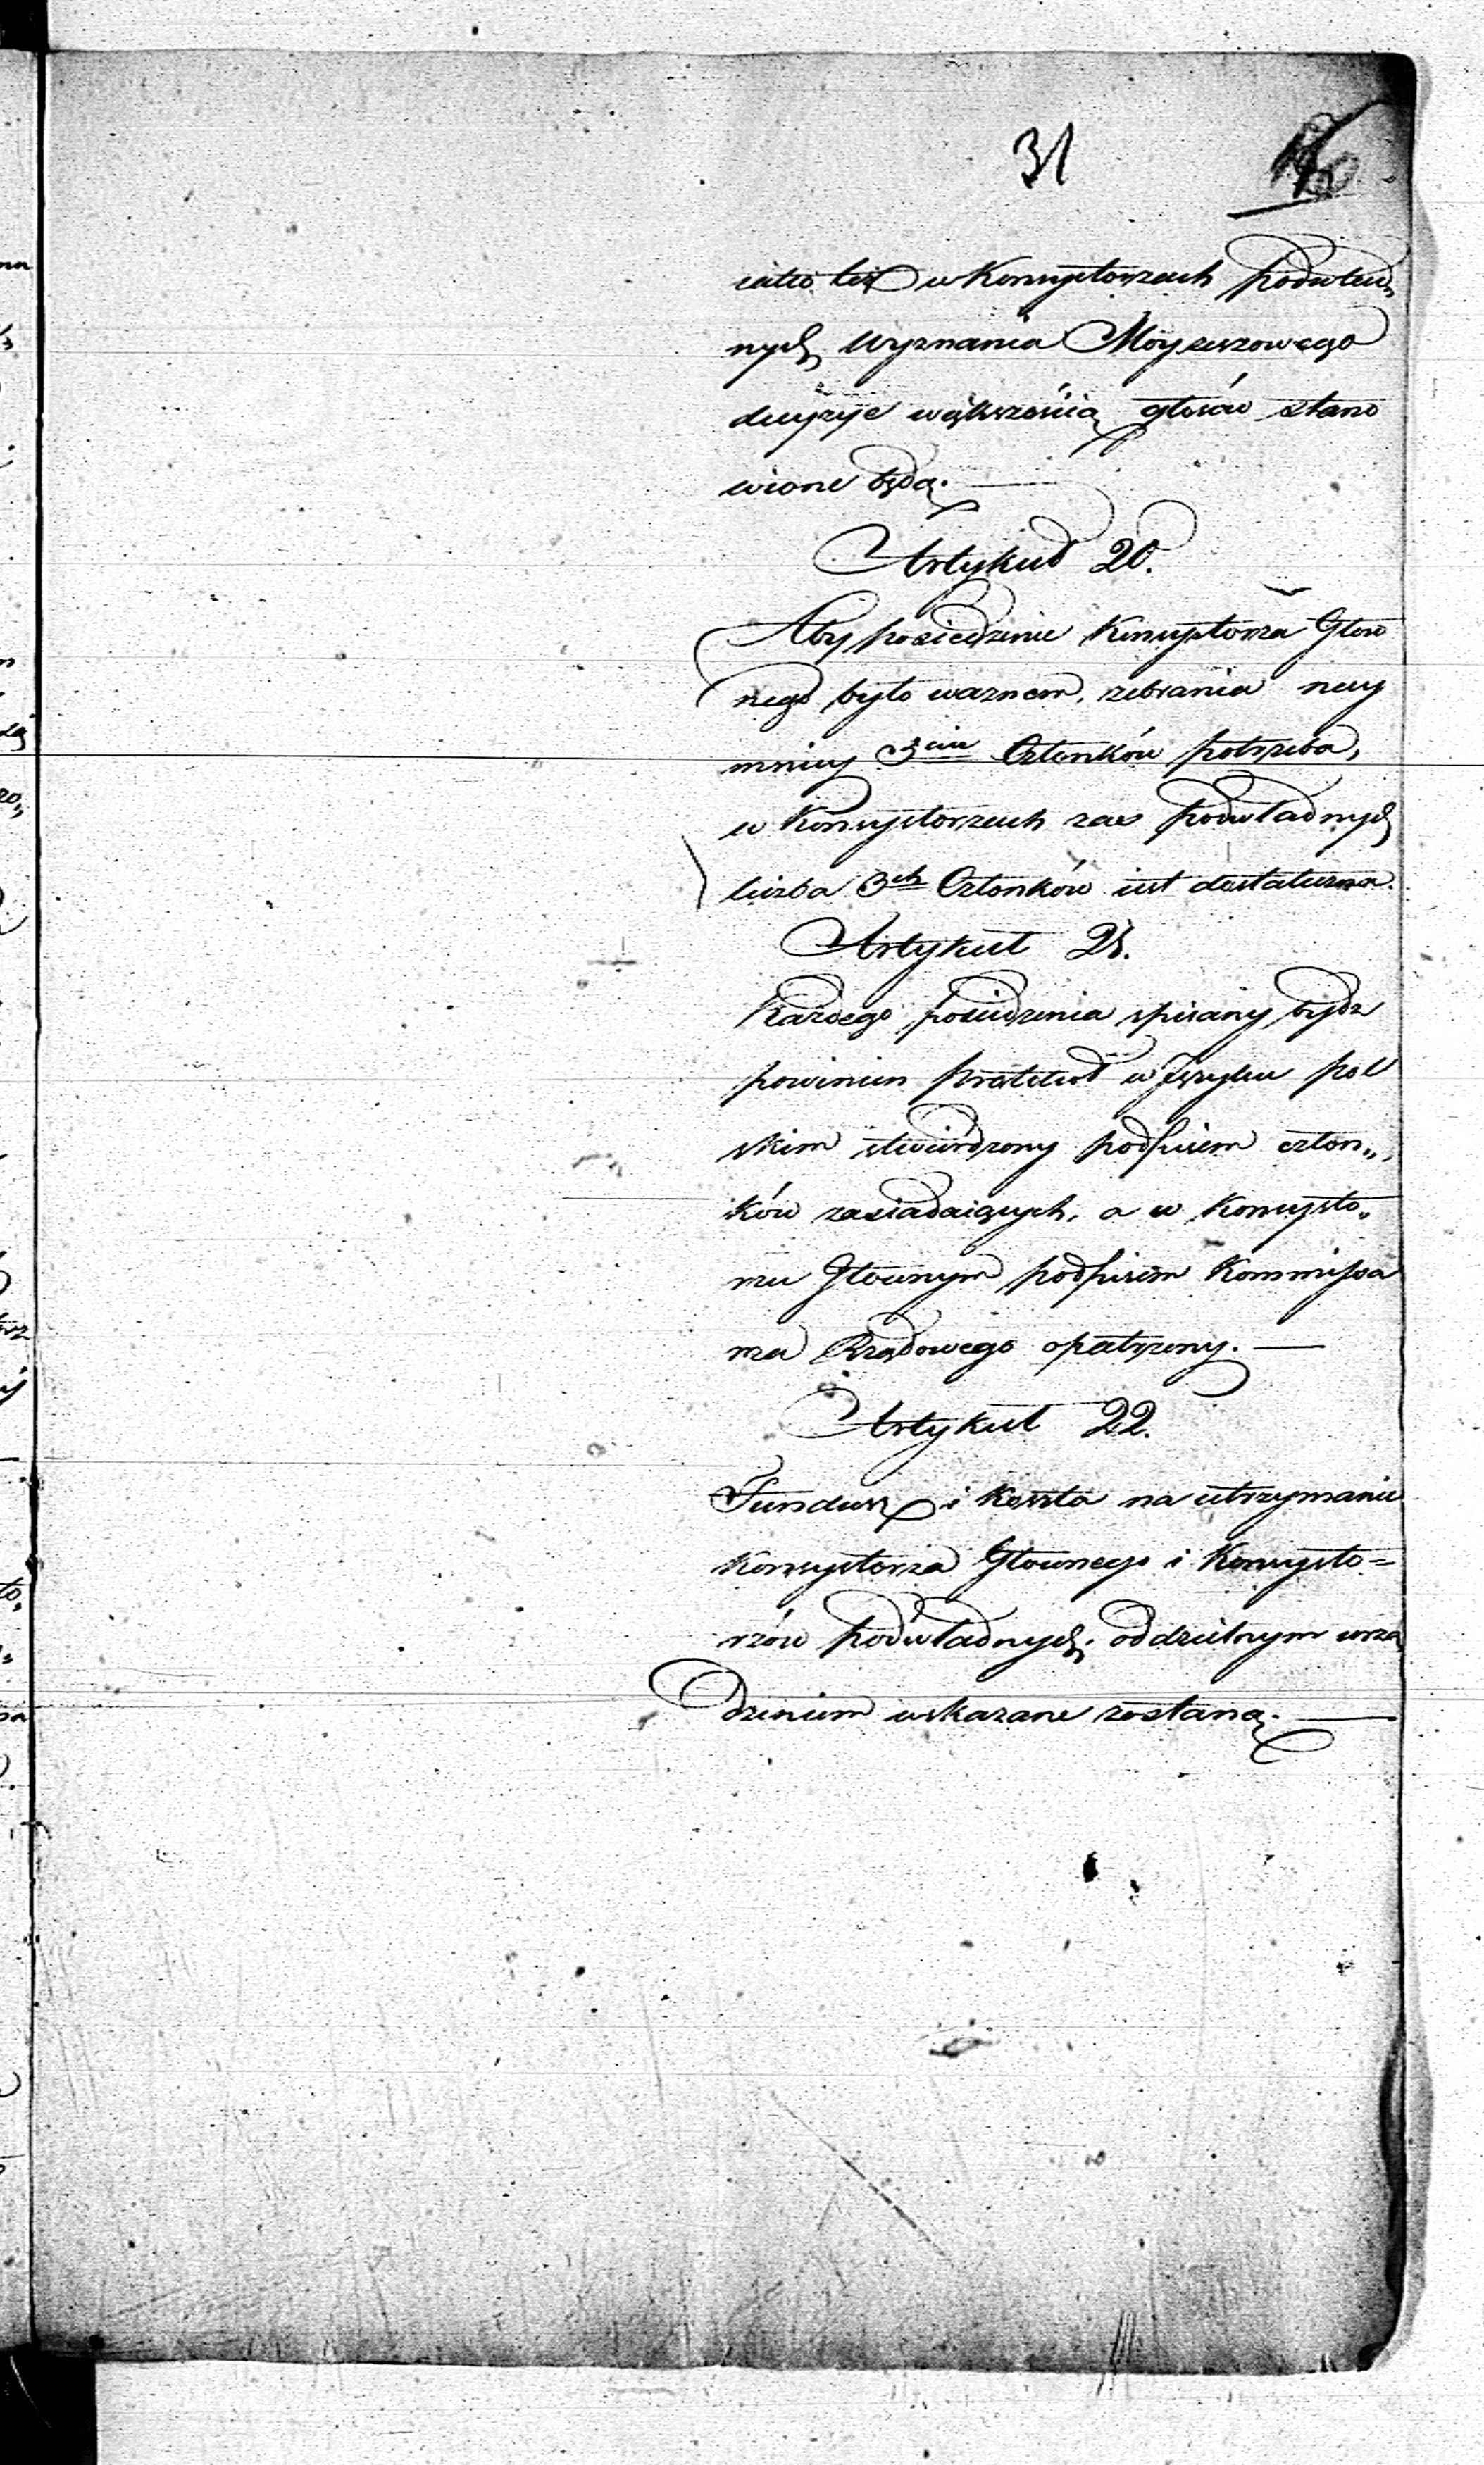 31
iako też w Konsystorzach podwład„
nych Wyznania Moyżeszowego
decyzye większością głosów stano
wione będą. —
Artykuł 20.
Aby posiedzenie Konsystorza Głow
nego było ważnem, zebrania nay
mniey 5ciu Członków potrzeba,
w Konsystorzach zaś podwładnych
liczba 3ch Członków iest dostateczna.
Artykuł 21.
Każdego posiedzenia spisany bydz
powinien protokuł w Języku pol
skim stwierdzony podpisem człon„
ków zasiadaiących, a w Konsysto„
rzu Głownym podpisem Kommissa
rza Rządowego opatrzony. —
Artykuł 22.
Fundusz i koszta na utrzymanie
Konsystorza Głownego i Konsysto=
rzów podwładnych, oddzielnym urzą
dzeniem wskazane zostaną. —